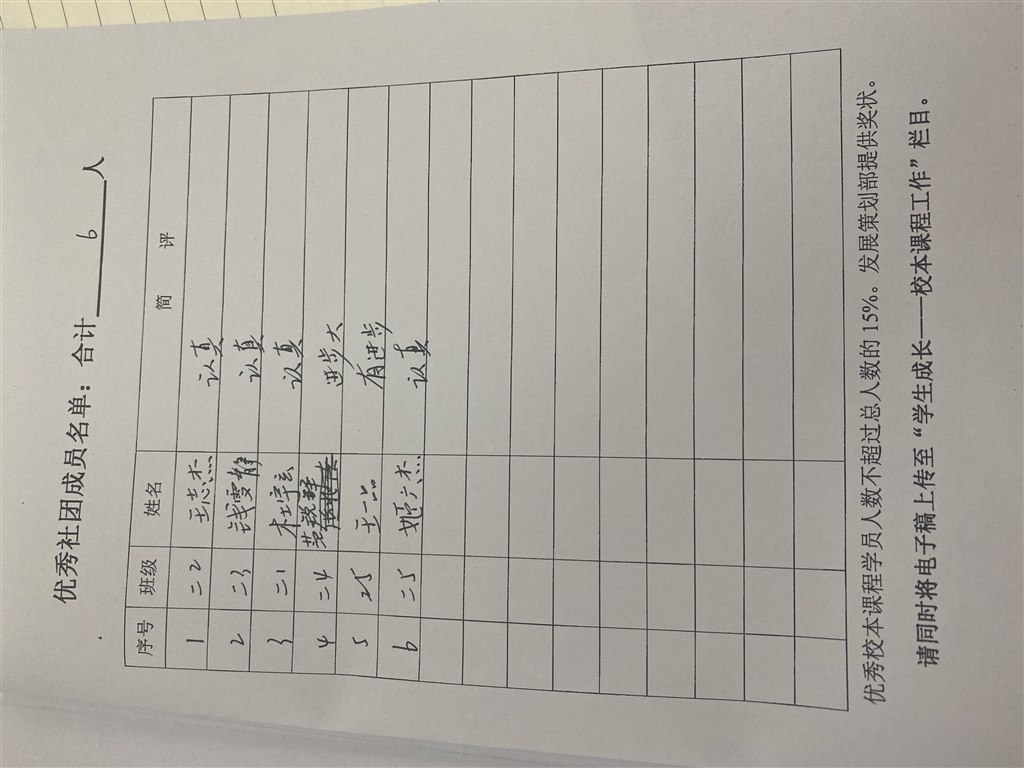 优秀社团成员名单：合计 6 人
序号 班级 姓名 简 评
1 二2 王志杰 认真
2 二3 钱雯静 认真
3 二1 认真
4 二4 进步大
5 25 王一品 有进步
6 二5 姬六杰 认真
优秀校本课程学员人数不超过总人数的15%。发展策划部提供奖状。
请同时将电子稿上传至“学生成长——校本课程工作”栏目。